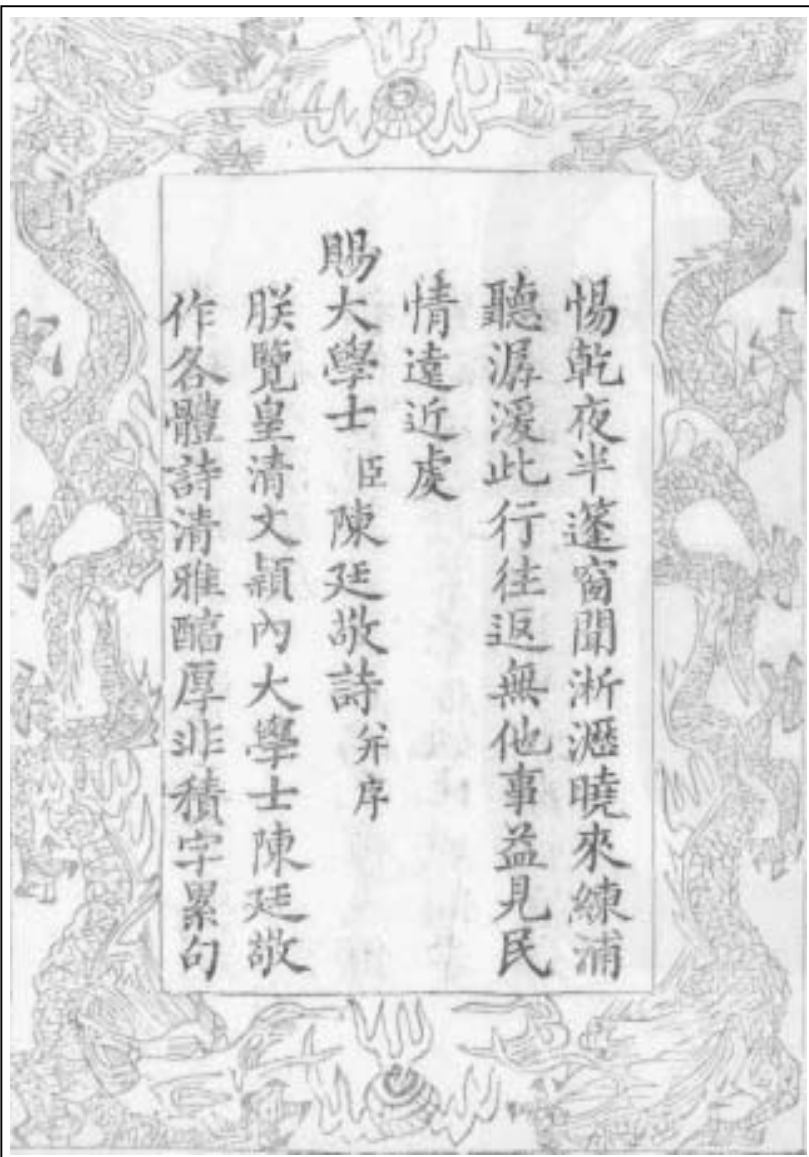 惕乾夜半蓬窗聞淅瀝曉來練浦
聽潺湲此行往返無他事益見民
情遠近處
賜大學士臣陳廷敬詩并序
朕覽皇清文穎內大學士陳廷敬
作各體詩清雅醇厚非積字累句